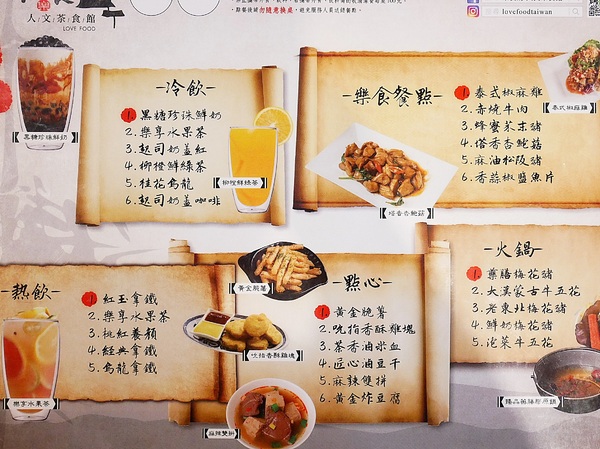 人文茶食館
LOVE FOOD
勿隨意換桌
lovefoodtaiwan
黑糖珍珠鮮奶
-冷飲-
1. 黑糖珍珠鮮奶
2. 樂享水果茶
3. 起司奶蓋紅
4. 柳橙鮮綠茶
5. 桂花烏龍
6. 起司奶蓋咖啡
【柳橙鮮綠茶】
-樂食餐點-
1. 泰式椒麻雞
2. 赤燒牛肉
3. 蜂蜜芥末豬
4. 塔香杏鮑菇
5. 麻油松阪豬
6. 香蒜椒鹽魚片
泰式椒麻雞
【塔香杏鮑菇】
-熱飲-
1. 紅玉拿鐵
2. 樂享水果茶
3. 桃紅養顏
4. 經典拿鐵
5. 烏龍拿鐵
樂享水果茶
-點心-
1. 黃金脆薯
2. 吮指香酥雞塊
3. 茶香滷米血
4. 匠心滷豆干
5. 麻辣雙拼
6. 黃金炸豆腐
【黃金脆薯】
【吮指香酥雞塊】
【麻辣雙拼】
-火鍋-
1. 藥膳梅花豬
2. 大漠蒙古牛五花
3. 老東北梅花豬
4. 鮮奶梅花豬
5. 泡菜牛五花